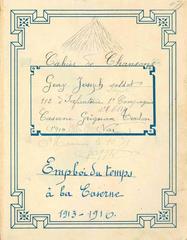 Cahier de Chansons
Geay Joseph soldat
112 d'Infanterie 1e Compagnie
Caserne Grignan Toulon
Var
Emploi du temps
à la Caserne
1913-1910